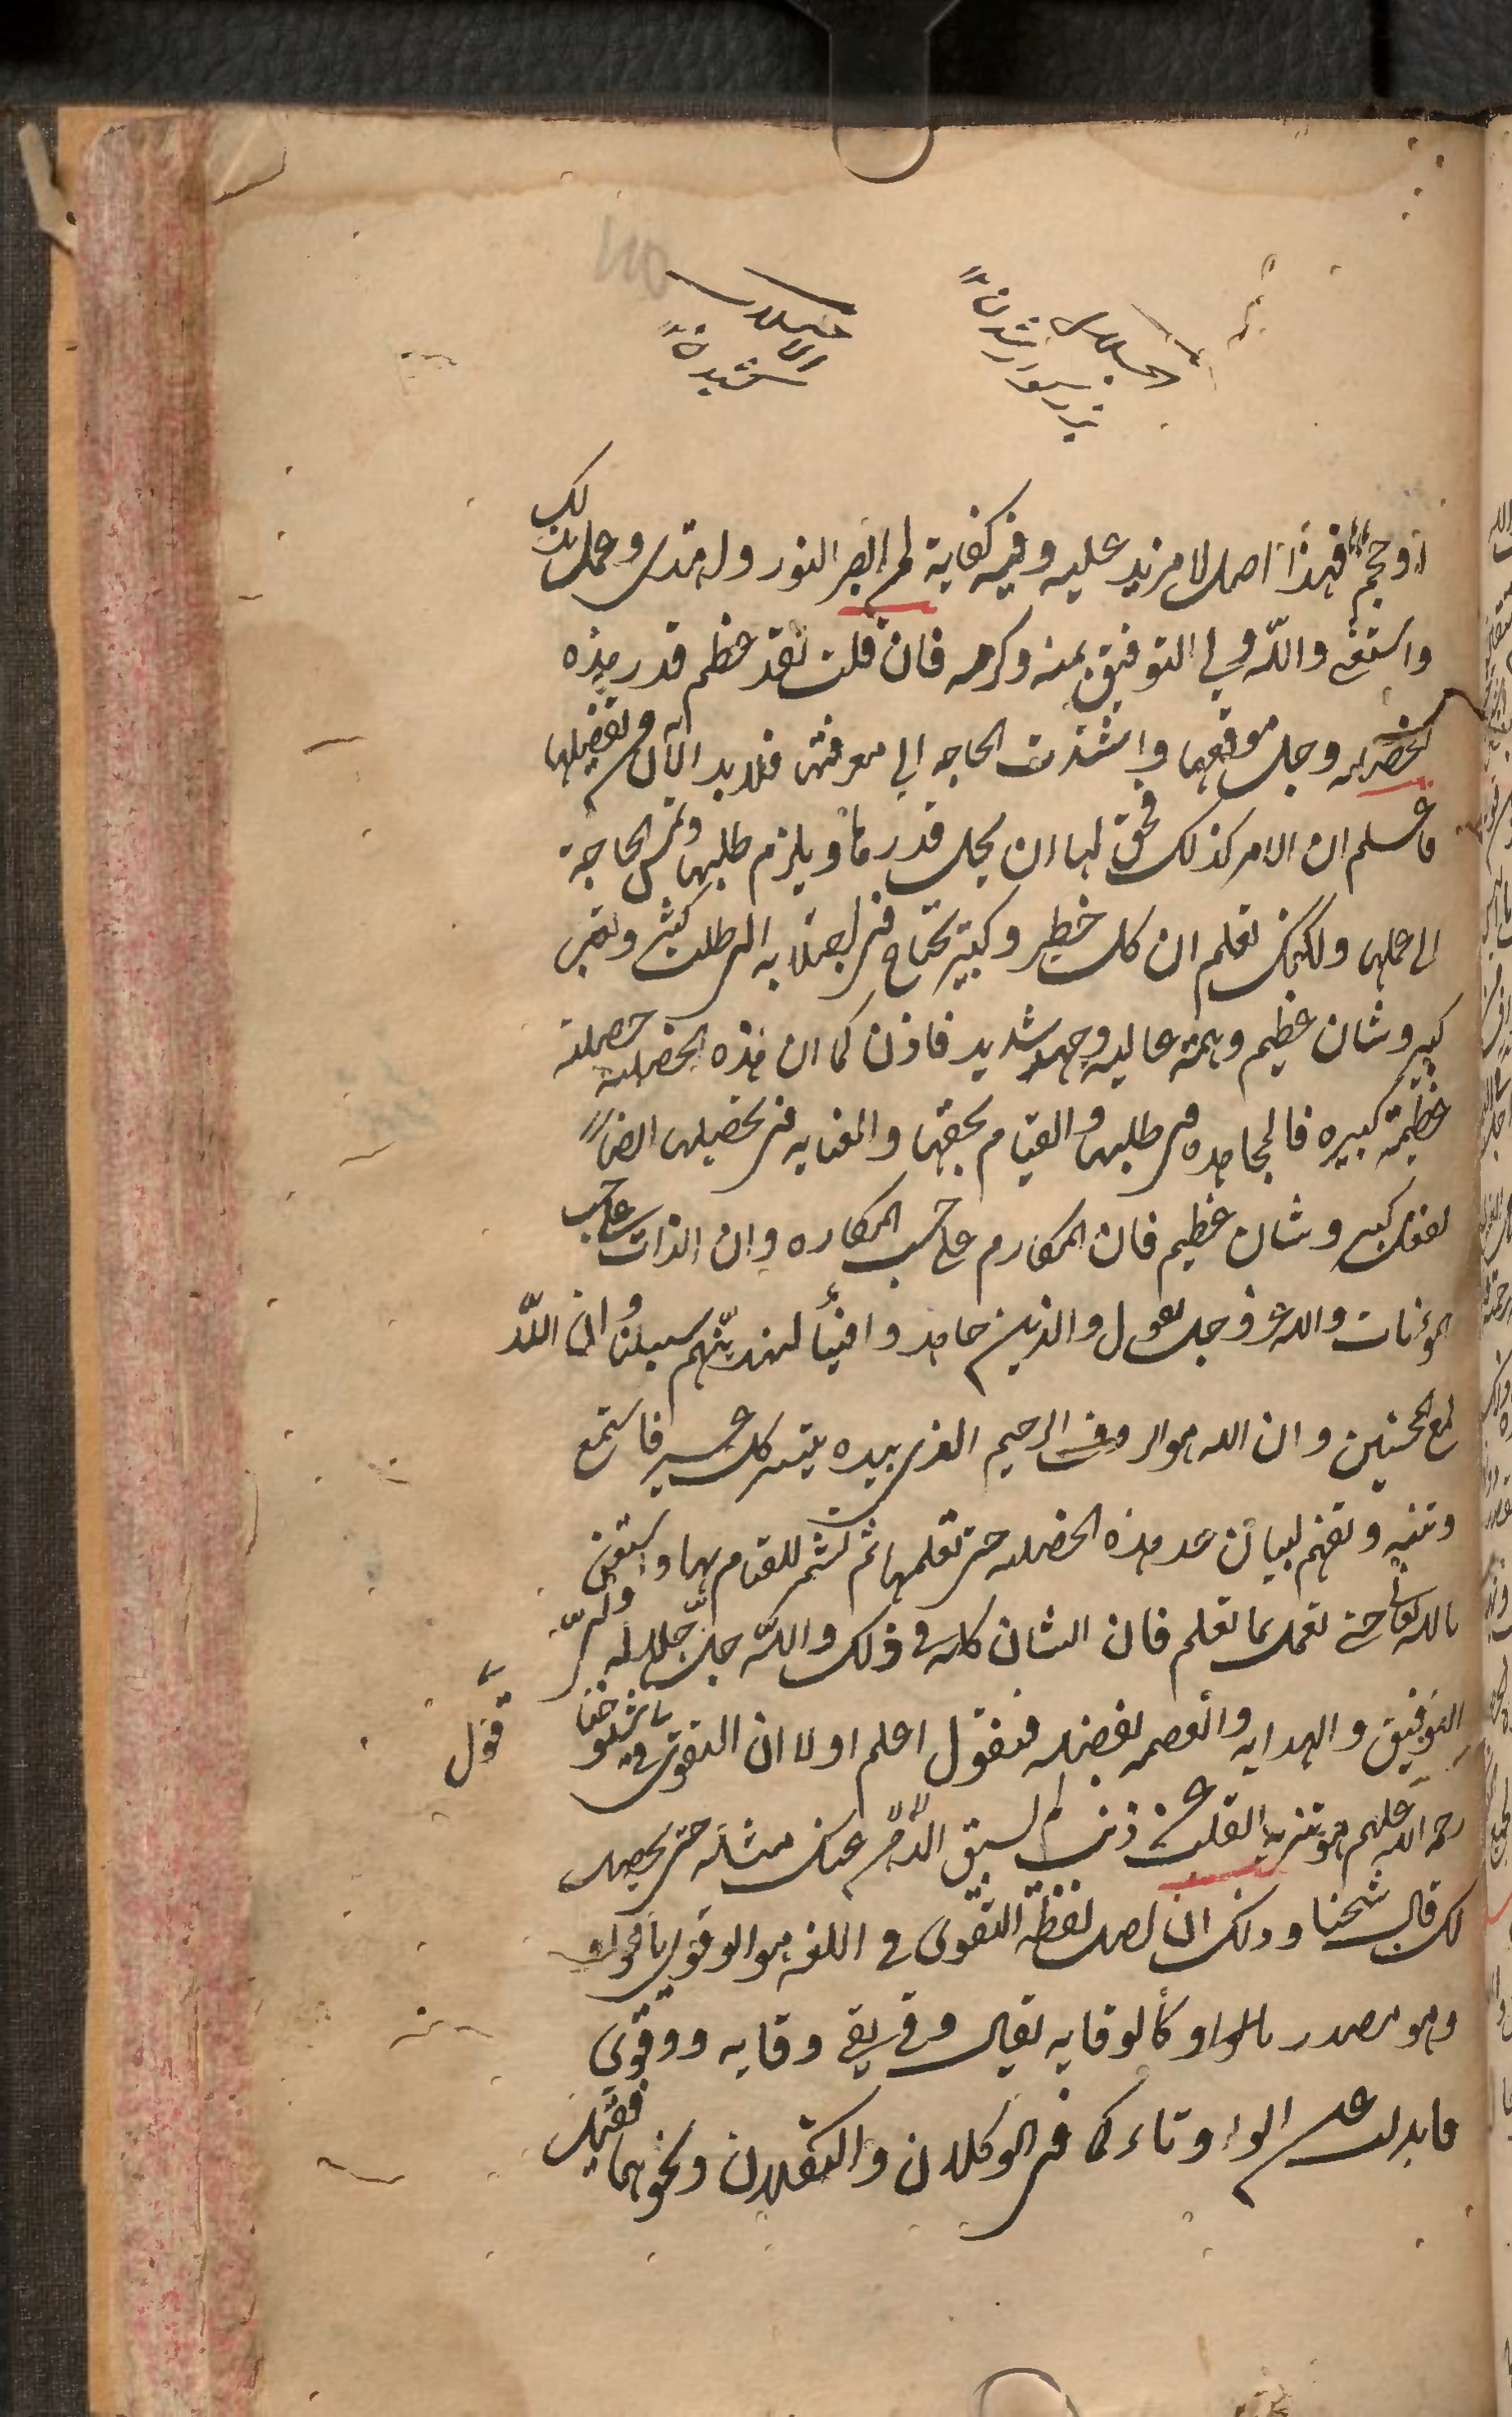 الاجلال
بزرسوار شدن
الاجلال
کشیدن
او حجم فهذا اصل لا مزيد عليه وفيه كفاية لمن ابصر النور ولاهتدى وعمل بذلك
واستغنى والله ولي التوفيق بمنه وكرمه فان قلت لقد عظم قدر هذه
الخصلة وجل موقعها واشتدت الحاجه الى معرفتها فلا بد الان من تفصيلها
فاعلم ان الامر كذلك فحق لها ان يجل قدرها ويلزم طلبها وتمس الحاجة
الى علمها ولكنك تعلم ان كل خطير وكبير يحتاج في اجتلابه الى طلب كثير وتعب
كبير وشان عظيم وهمة عاليه وجهد شديد فاذن كما ان هذه الخصلة خصلة
عظيمة كبيره فالمجاهده في طلبها والقيام بحقها والعنايه في تحصيلها ايضا
لفعل كبير وشان عظيم فان المكارم على حسب المكاره وان الذات على حسب
المؤنات والله عز وجل يقول والذين جاهدوا فينا لنهدينهم سبلنا وان الله
لمع المحسنين وان الله هو الروف الرحيم الذى بيده تيسر كل عسير فاستمع
وتنبه وتفهم لبيان حد هذه الخصله حتى تعلمها ثم تشمر للقيام بها واستعن
بالله تعالى حتى تعمل بما تعلم فان الشان كله في ذلك والله جل جلاله ولى
التوفيق والهدايه والعصمه بفضله فنقول اعلم اولا ان التقوى في قول شيوخنا
رحمة الله عليهم هو تنزيه القلب عن ذنب لم يسبق الذم عنك مثله حتى يحصل
لك قال شيخنا وذلك ان اصل لفظة التقوى في اللغه هو الوقوى بالواو
وهو مصدر بالواو كالوقايه يقال وقى يقي وقايه ووقوى
فابدلت عن الواو تاء كما في الوكلان والتكلان ونحوهما فقيل
قول